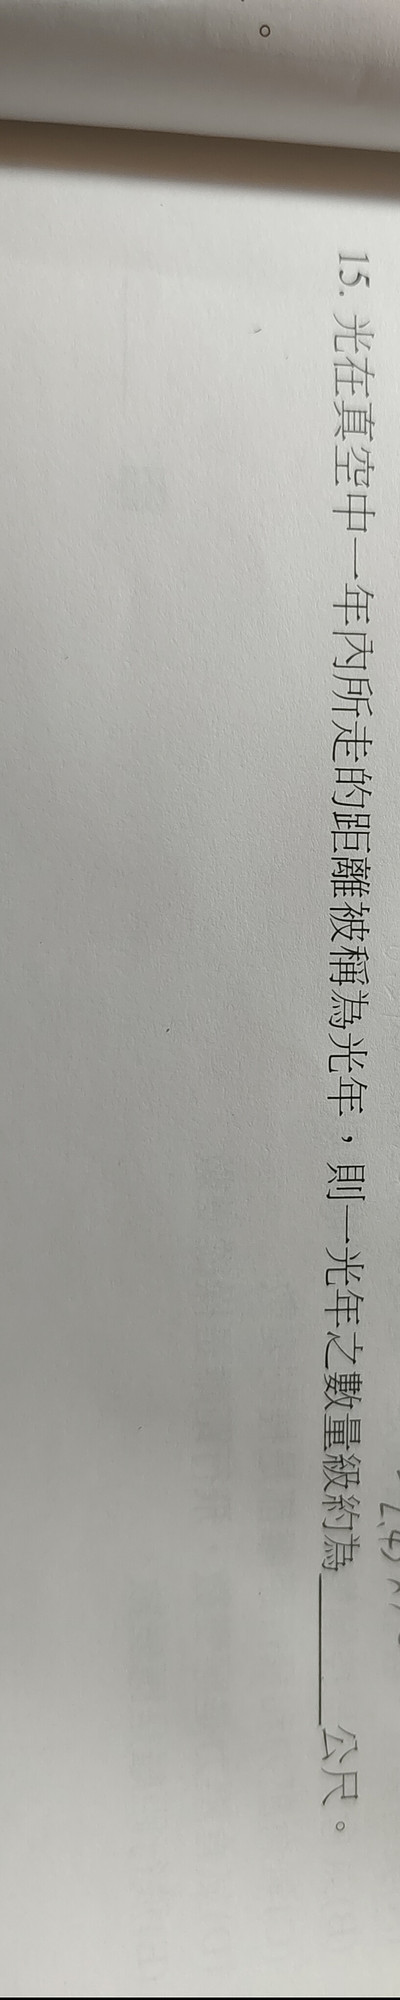 15. 光在真空中一年內所走的距離被稱為光年，則一光年之數量級約為______公尺。